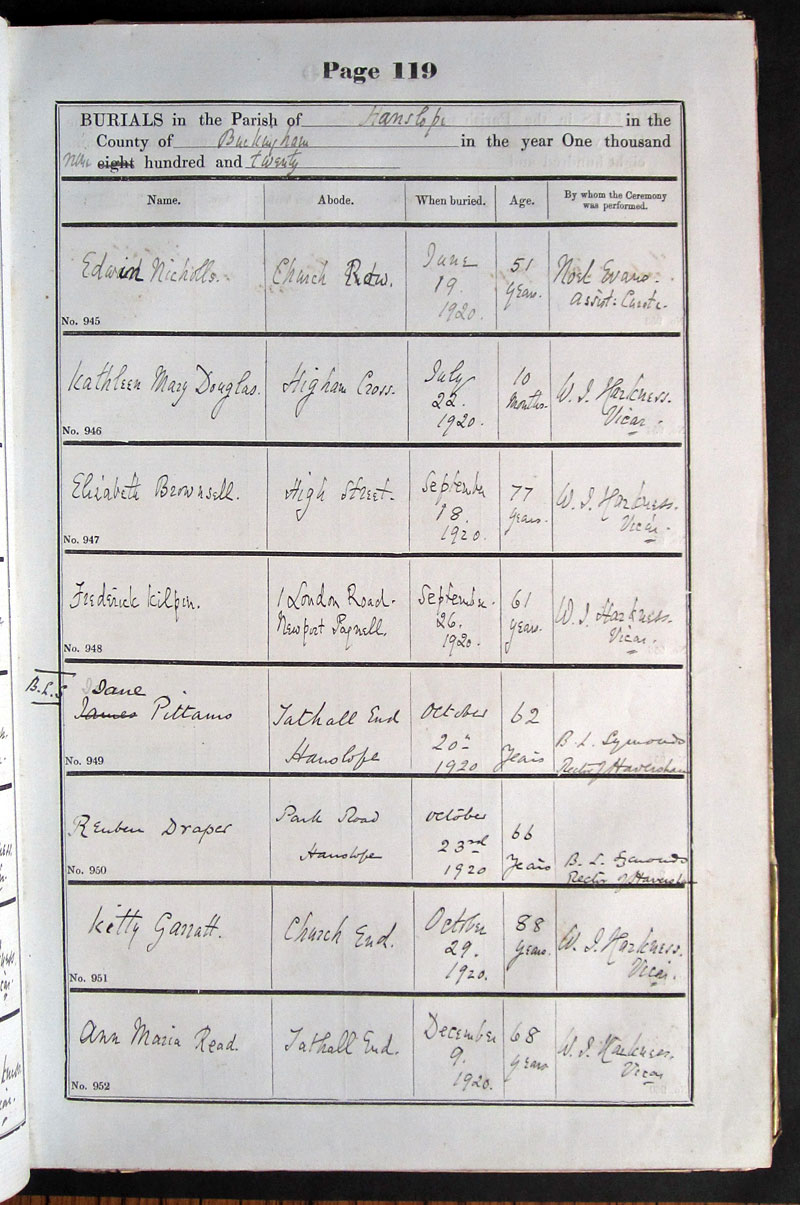 Page 119
BURIALS in the Parish of Hanslope in the
County of Buckingham in the year One thousand
nine eight hundred and twenty
Name. Abode. When buried. Age. By whom the Ceremony was performed.
Edwin Nicholls. Church Row. June 19. 1920. 51 years. Noel Evans. Assist: Curate.
No. 945
Kathleen Mary Douglas. Higham Cross. July 22. 1920. 10 months. W. J. Harkness. Vicar.
No. 946
Elizabeth Brownsell. High Street. September 18. 1920. 77 years. W. J. Harkness. Vicar.
No. 947
Frederick Kilpin. 1 London Road. Newport Pagnell. September 26. 1920. 61 years. W. J. Harkness. Vicar.
No. 948
B.L.S
Jane
James Pittams Tathall End Hanslope October 20th 1920 62 Years B. L. Symonds Rector of Haversham
No. 949
Reuben Draper Park Road Hanslope October 23rd 1920 66 Years B. L. Symonds Rector of Haversham
No. 950
Kitty Garratt. Church End. October 29. 1920. 88 years. W. J. Harkness. Vicar.
No. 951
Ann Maria Read. Tathall End. December 9. 1920. 68 years W. J. Harkness. Vicar
No. 952